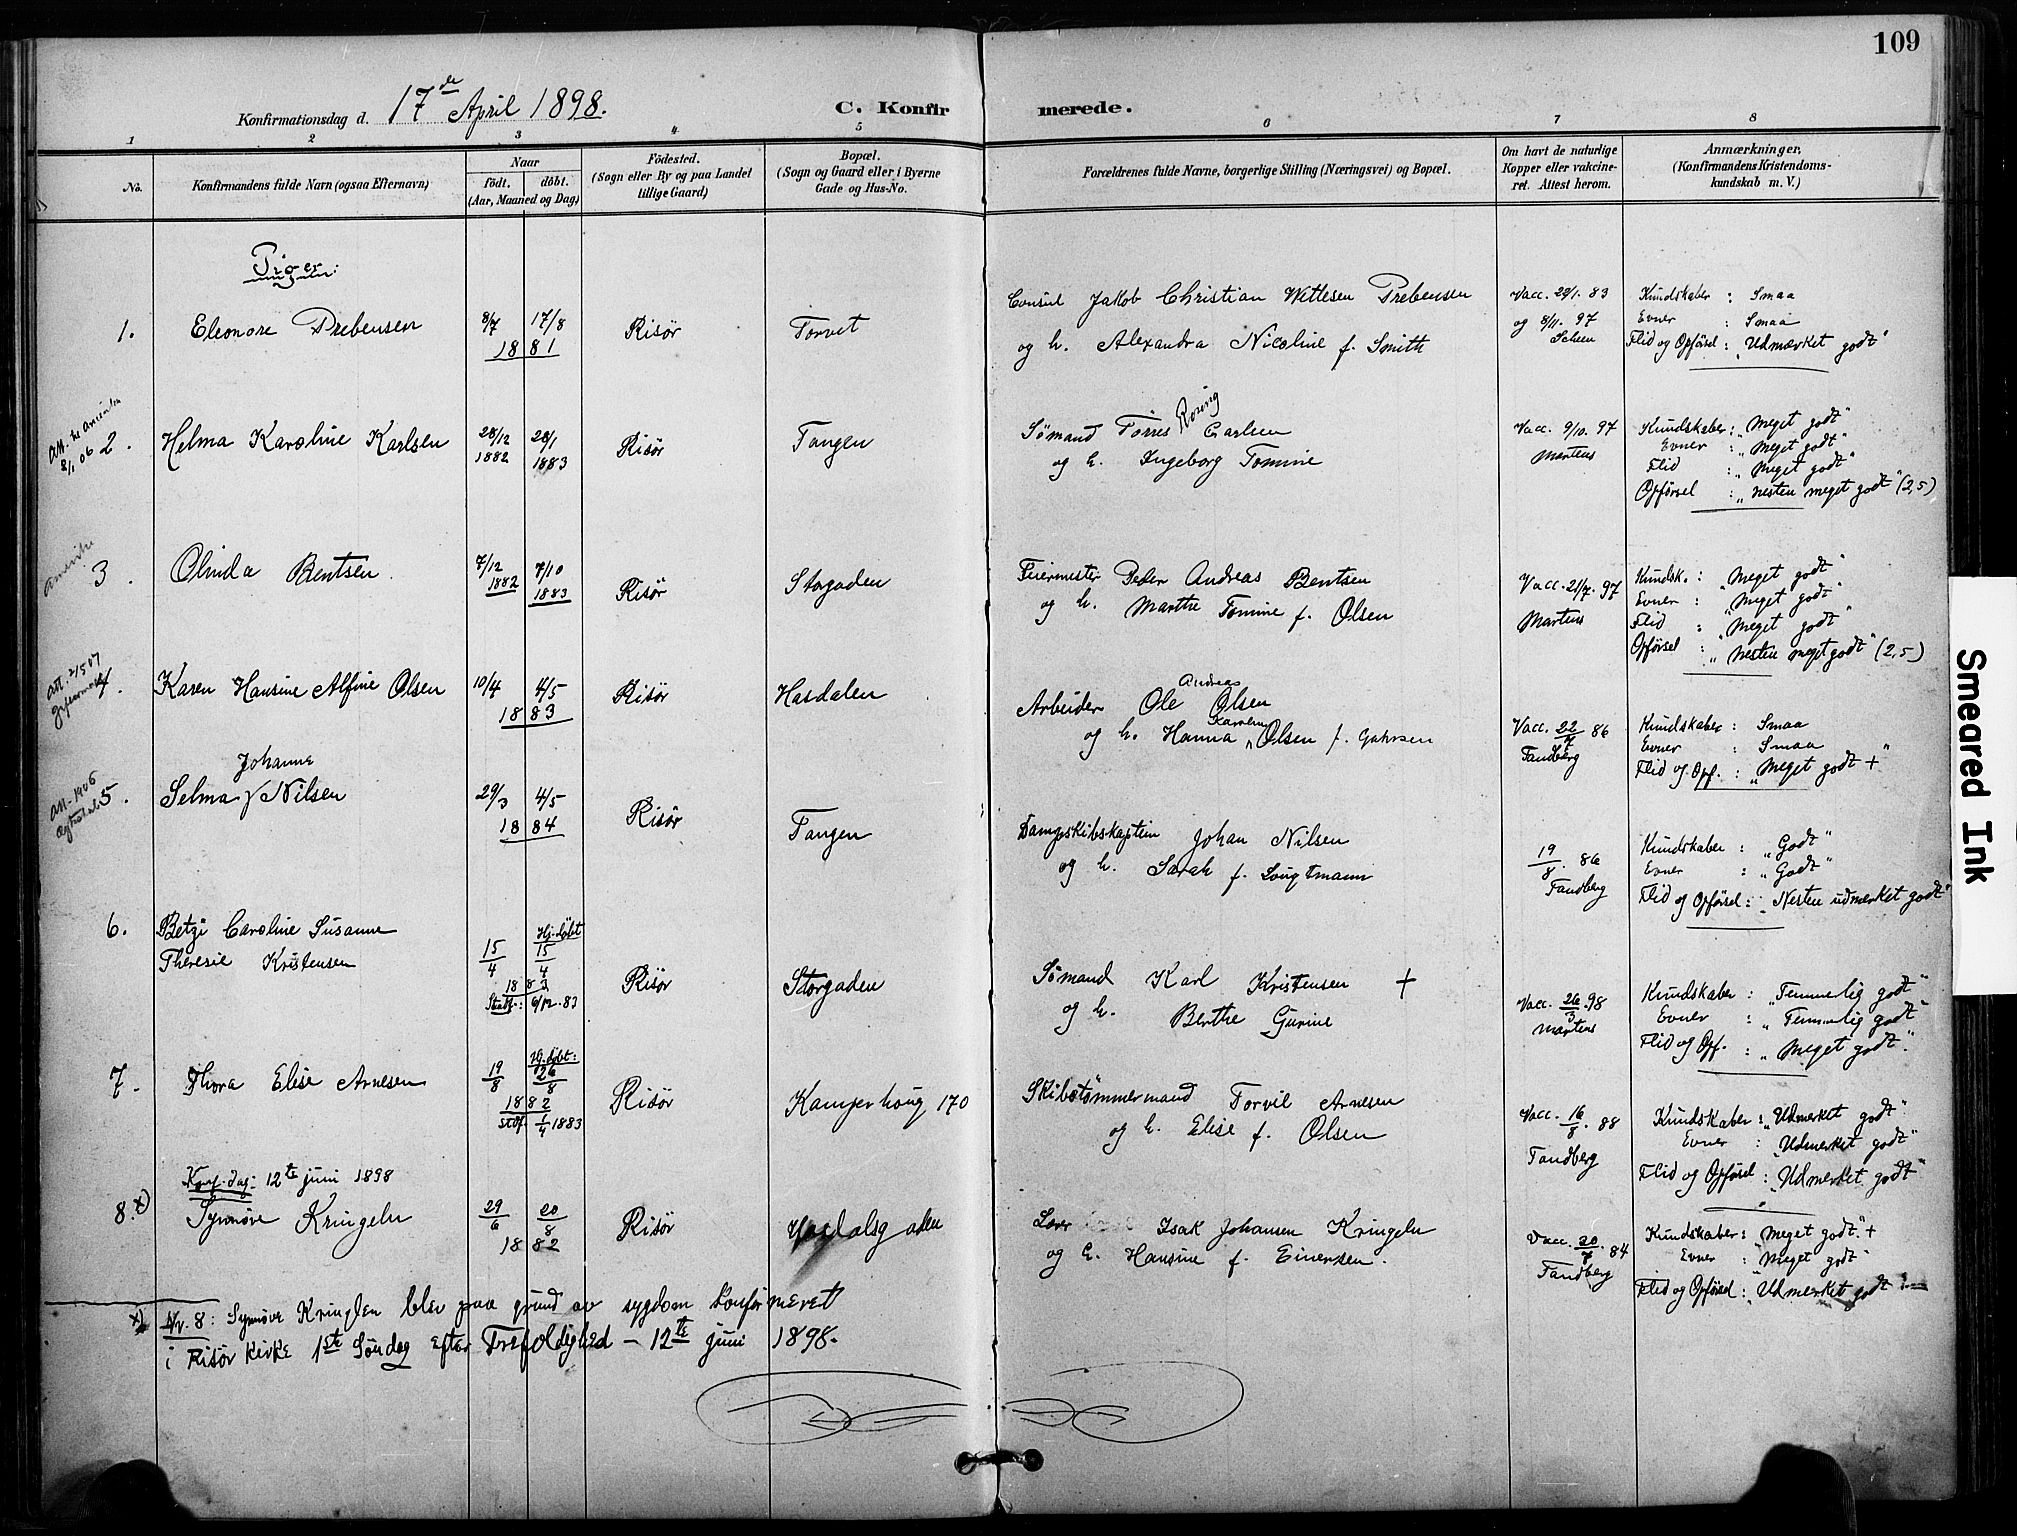 109
Konfirmationsdag d. 17de April 1898.
C. Konfirmerede.
1 2 3 4 5 6 7 8
No.
Konfirmandens fulde Navn (ogsaa Efternavn)
Naar
født. døbt.
(Aar, Maaned og Dag)
Fødested.
(Sogn eller By og paa Landet
tillige Gaard)
Bopæl.
(Sogn og Gaard eller i Byerne
Gade og Hus-No.
Forældrenes fulde Navne, borgerlige Stilling (Næringsvei) og Bopæl.
Om havt de naturlige
Kopper eller vakcine-
ret. Attest herom.
Anmærkninger,
(Konfirmandens Kristendoms-
kundskab m. V.)
Piger:
1. Eleonore Prebensen
8/7 17/8
1881
Risør
Torvet
Consul Jakob Christian Wittesen Prebensen
og h. Alexandra Nicoline f. Smith
Vacc. 29/1. 83
og 8/11. 97
Scheen
Kundskaber : Smaa
Evner : Smaa
Flid og Opførsel : "Udmærket godt"
Att. til Amerika
8/1 06
2. Helma Karoline Karlsen
28/12 28/1
1882 1883
Risør
Tangen
Sømand Tørres Rosing Carlsen
og h. Ingeborg Tomine
Vacc. 9/10. 97
Martens
Kundskaber : "Meget godt"
Evner : "Meget godt"
Flid : "Meget godt"
Opførsel : "nesten meget godt" (2,5)
Amerika
3. Olinda Bentsen
7/12 7/10
1882 1883
Risør
Storgaden
Feiermester Peder Andreas Bentsen
og h. Marthe Tomine f. Olsen
Vacc. 21/7. 97
Martens
Kundsk. : "Meget godt"
Evner : "Meget godt"
Flid : "Meget godt"
Opførsel : "Nesten meget godt" (2,5)
4. Karen Hansine Alfine Olsen
10/4 4/5
1883
Risør
Hasdalen
Arbeider Ole Andreas Olsen
og h. Hanna Karoline Olsen f.
Vacc. 22/7 86
Tandberg
Kundskaber : Smaa
Evner : Smaa
Flid og Opf. : "Meget godt +"
Att. 1906
5. Selma Johanne Nilsen
29/3 4/5
1884
Risør
Tangen
Dampskibskaptein Johan Nilsen
og h. Sarah f.
19/8. 86
Tandberg
Kundskaber : "Godt"
Evner : "Godt"
Flid og Opførsel : "Nesten udmærket godt"
6. Betzi Caroline Susanne
Theresie Kristensen
15/4 Hj. døbt 15/4
1883
Stadf.: 6/12. 83
Risør
Storgaden
Sømand Karl Kristensen +
og h. Berthe Gurine
Vacc. 26/3. 98
Martens
Kundskaber : "Temmelig godt"
Evner : "Temmelig godt"
Flid og Opf. : "Meget godt".
7. Thora Elise Arnesen
19/8 Hj. døbt: 26/8
1882
stdf. 1/4 1883
Risør
Kamperhoug 170
Skibstømmermand Torvil Arnesen
og h. Elise f. Olsen
Vacc. 16/8. 88
Tandberg
Kundskaber : "Udmerket godt"
Evner : "Udmerket godt"
Flid og Opførsel : "Udmerket godt"
Konf. dag: 12te juni 1898
8. x) Synnøve Kringeln
29/6 20/8
1882
Risør
Hasdalsgaden
Isak Johansen Kringeln
og h. Hansine f. Einersen.
Vacc. 20/7. 84
Tandberg
Kundskaber : "Meget godt" +
Evner : "Meget godt"
Flid og Opførsel : "Udmerket godt"
x) Nr. 8: Synnøve Kringlen blev paa grund av sygdom konfirmeret
i Risør kirke 1ste Søndag efter Trefoldighed – 12te juni 1898.
Smeared Ink